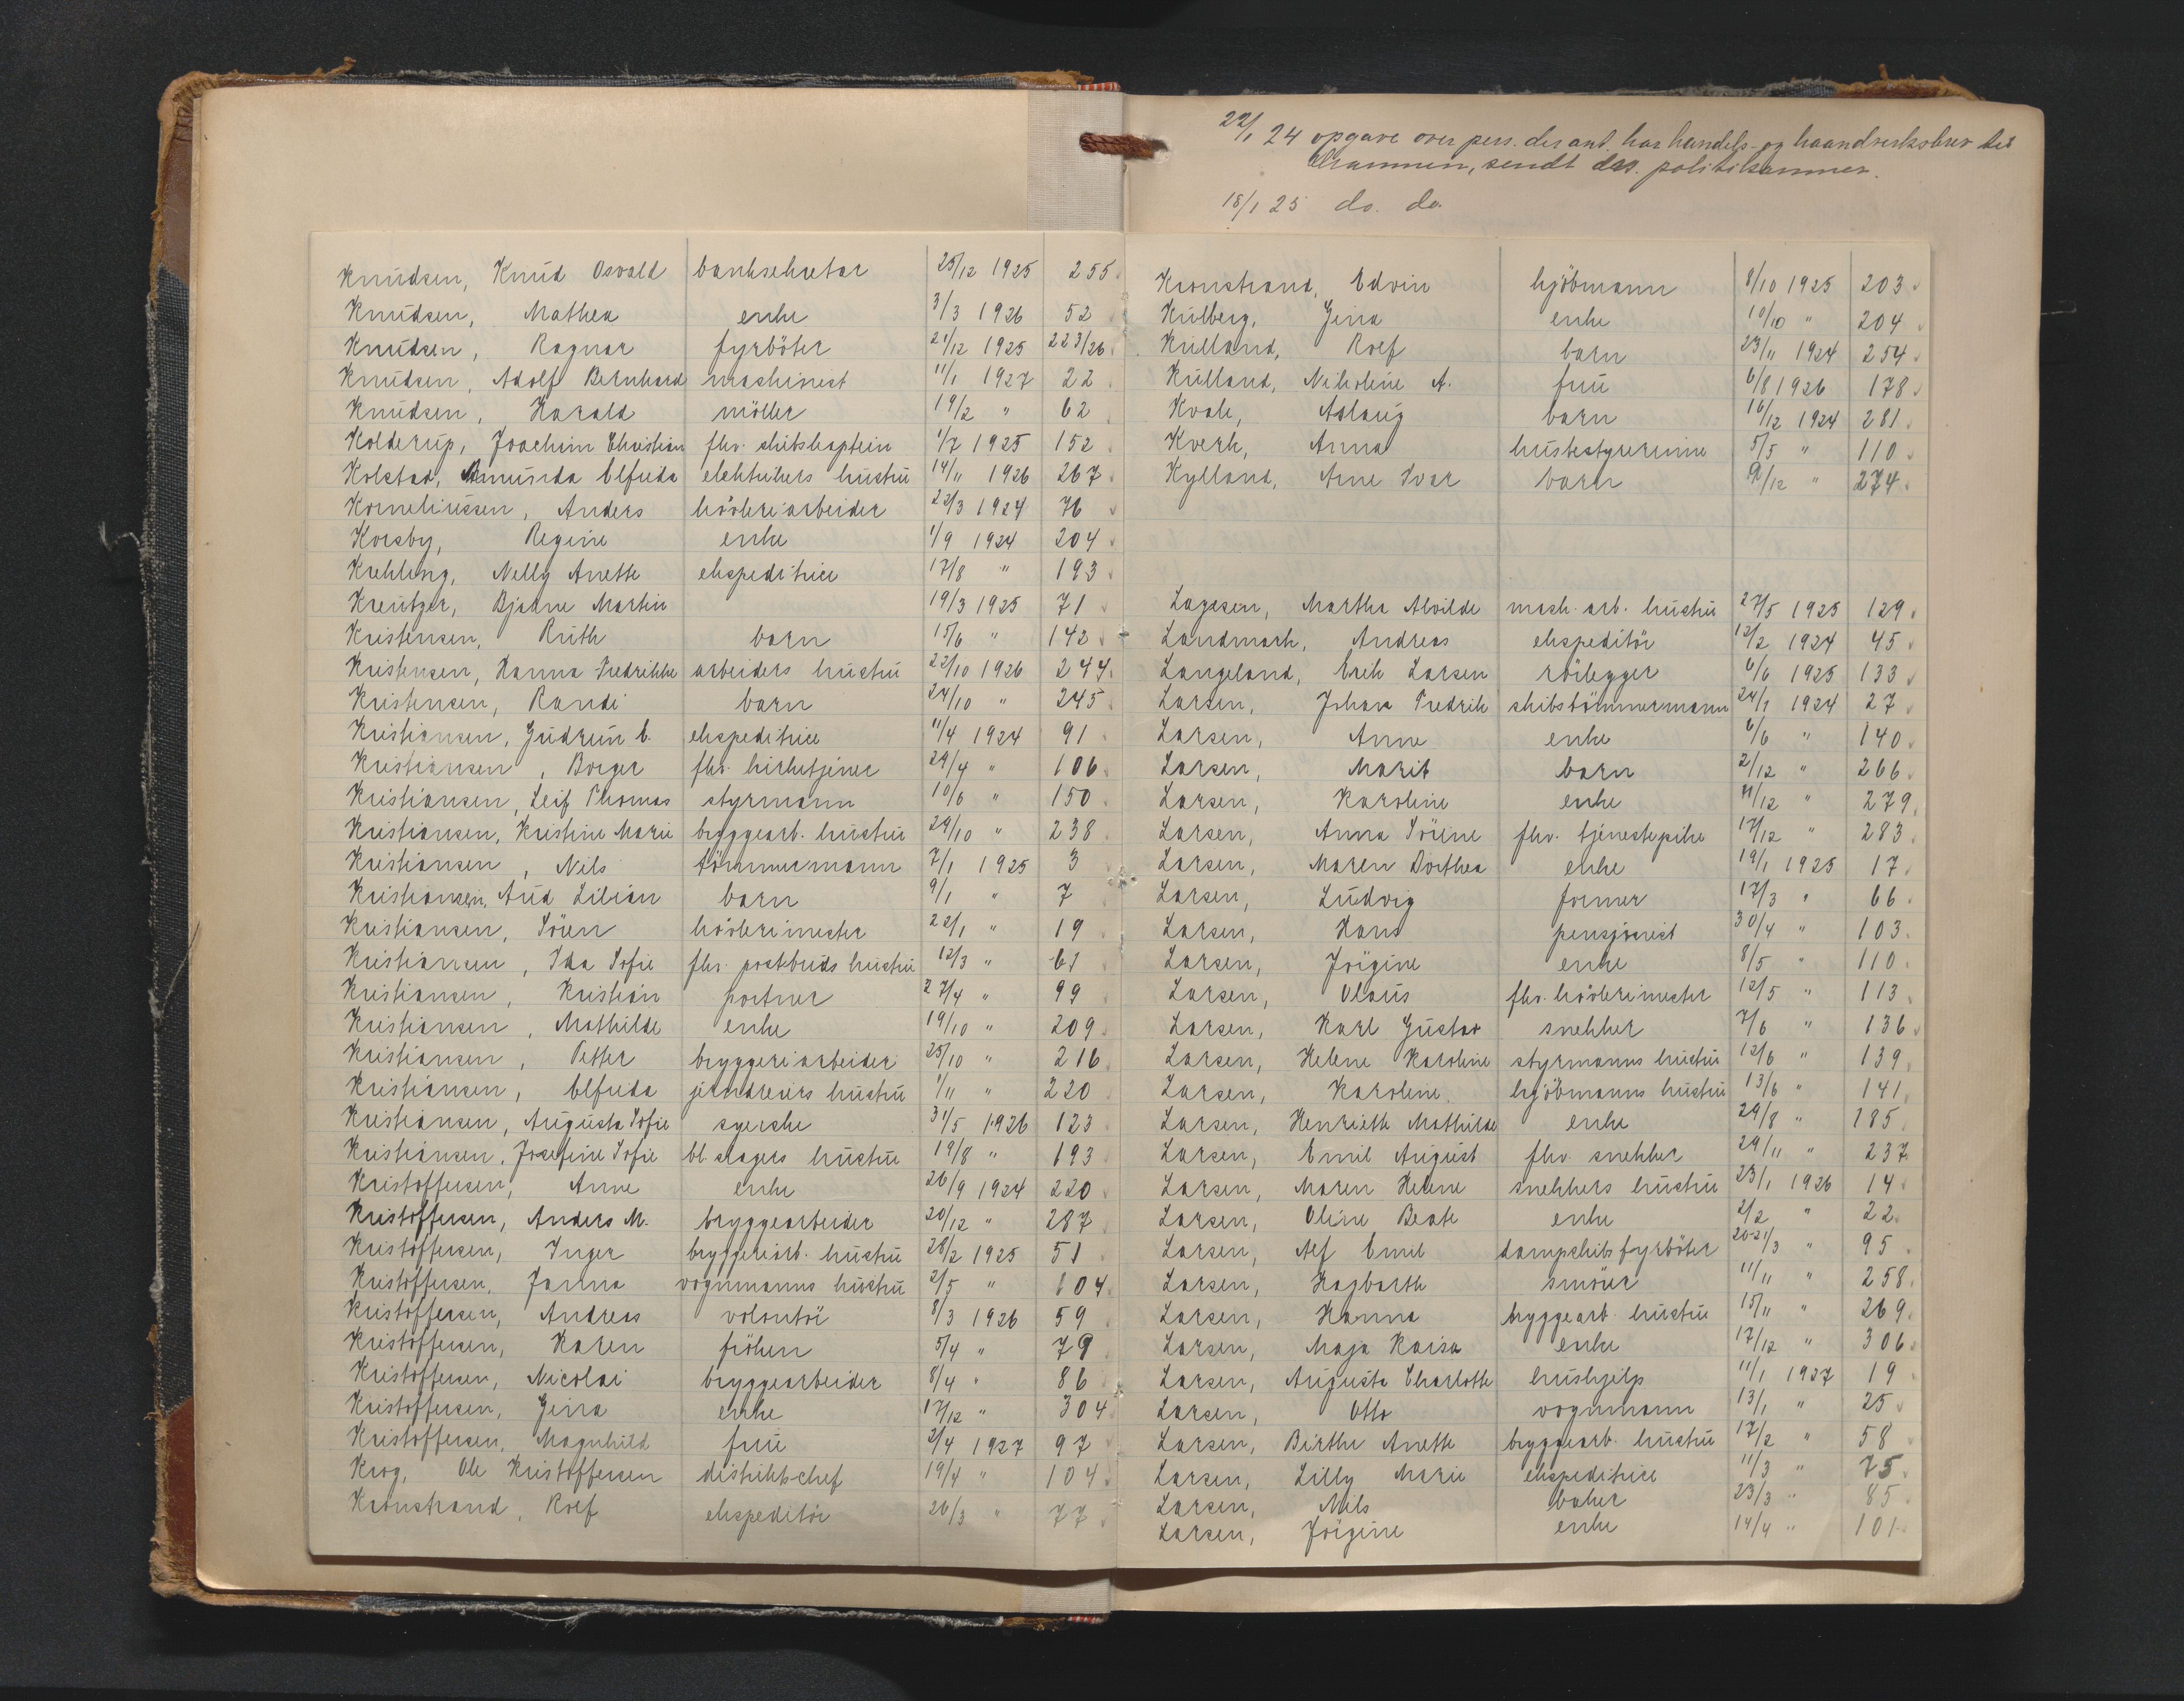 22/1 24 opgave over pers. der ant. har handels- og haandverksbrev til
Drammen, sendt drs. politikammer.
18/1 25 do. do.
Knudsen, Knud Osvald banksekretær 25/12 1925 255
Knudsen, Mathea enke 3/3 1926 52
Knudsen, Ragnar fyrböter 21/12 1925 223/26
Knudsen, Adolf Bernhard maskinist 11/1 1927 22
Knudsen, Harald möller 19/2 " 62
Kolderup, Joachim Christian fhv. skibskaptein 1/7 1925 152
Kolstad, Amunda Elfrida elektrikers hustru 14/11 1926 267
Korneliussen, Anders hövleriarbeider 22/3 1924 76
Korsby, Regine enke 1/9 1924 204
Krehling, Nelly Anette ekspeditrice 17/8 " 193
Kreutzer, Bjarne Martin 19/3 1925 71
Kristensen, Ruth barn 15/6 " 142
Kristensen, Hanna Fredrikke arbeiders hustru 22/10 1926 244
Kristensen, Randi barn 24/10 " 245
Kristiansen, Gudrun E. ekspeditrice 11/4 1924 91
Kristiansen, Borger fhv. kirketjener 29/4 " 106
Kristiansen, Leif Thomas styrmann 10/6 " 150
Kristiansen, Kristine Marie bryggearb. hustru 24/10 " 238
Kristiansen, Nils tömmermann 7/1 1925 3
Kristiansen, Aud Lilian barn 9/1 " 7
Kristiansen, Sören hövlerimester 22/1 " 19
Kristiansen, Ida Sofie fhv. postbuds hustru 12/3 " 61
Kristiansen, Kristian portner 27/4 " 99
Kristiansen, Mathilde enke 19/10 " 209
Kristiansen, Petter bryggeriarbeider 25/10 " 216
Kristiansen, Elfrida jerndreiers hustru 1/11 " 220
Kristiansen, Augusta Sofie syerske 31/5 1926 123
Kristiansen, Josefine Sofie bl.slagers hustru 19/8 " 193
Kristoffersen, Anne enke 26/9 1924 220
Kristoffersen, Anders M. bryggearbeider 20/12 " 287
Kristoffersen, Inger bryggeriarb. hustru 28/2 1925 51
Kristoffersen, Janna vognmanns hustru 2/5 " 104
Kristoffersen, Andreas volontör 8/3 1926 59
Kristoffersen, Karen fröken 5/4 " 79
Kristoffersen, Nicolai bryggearbeider 8/4 " 86
Kristoffersen, Gina enke 17/12 " 304
Kristoffersen, Magnhild frue 2/4 1927 97
Krog, Ole Kristoffersen distriktschef 19/4 " 104
Kronstrand, Rolf ekspeditör 26/3 " 77
Kronstrand, Edvin kjöbmann 8/10 1925 203
Kulberg, Gina enke 10/10 " 204
Kulland, Rolf barn 23/11 1924 254
Kulland, Nikoline A. frue 6/8 1926 178
Kvale, Aslaug barn 16/12 1924 281
Kverk, Anna husbestyrerinne 5/5 " 110
Kylland, Arne Ivar barn 9/12 " 274
Lagesen, Martha Alvilde mask. arb. hustru 27/5 1925 129
Landmark, Andreas ekspeditör 12/2 1924 45
Langeland, Erik Larsen rörlegger 6/6 1925 133
Larsen, Johan Fredrik skibstömmermann 24/1 1924 27
Larsen, Anne enke 6/6 " 140
Larsen, Marit barn 2/12 " 266
Larsen, Karoline enke 11/12 " 279
Larsen, Anna Sörine fhv. tjenestepike 17/12 " 283
Larsen, Maren Dorthea enke 19/1 1925 17
Larsen, Ludvig former 17/3 " 66
Larsen, Hans pensjonist 30/4 " 103
Larsen, Jörgine enke 8/5 " 110
Larsen, Olaus fhv. hövlerimester 12/5 " 113
Larsen, Karl Gustav snekker 7/6 " 136
Larsen, Helene Karoline styrmanns hustru 12/6 " 139
Larsen, Karoline kjöbmanns hustru 13/6 " 141
Larsen, Henriette Mathilde enke 29/8 " 185
Larsen, Emil August fhv. snekker 29/11 " 237
Larsen, Maren Helene snekkers hustru 23/1 1926 14
Larsen, Oline Beate enke 2/2 " 22
Larsen, Alf Emil dampskibsfyrböter 20-21/3 " 95
Larsen, Hagbarth smörer 11/11 " 258
Larsen, Hanna bryggearb. hustru 15/11 " 269
Larsen, Maja Kaisa enke 17/12 " 306
Larsen, Augusta Charlotte hushjelp 11/1 1927 19
Larsen, Otto vognmann 13/1 " 25
Larsen, Birthe Anette bryggearb. hustru 17/2 " 58
Larsen, Lilly Marie ekspeditrice 11/3 " 75
Larsen, Nils baker 23/3 " 85
Larsen, Jörgine enke 14/4 " 101